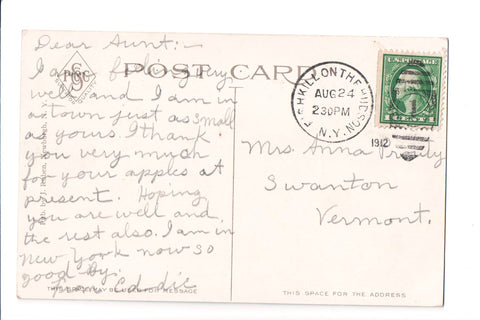 Dear Aunt:-
I am feeling very
well and I am in
a town just as small
as yours. I thank
you very much
for your apples at
present. Hoping
you are well and
the rest also. I am in
New York now so
good by.
from Eddie
POST CARD
FISHKILL ON THE HUDSON, N.Y.
AUG 24
230 PM
1912
1 CENT 1
Mrs. Anna
Swanton
Vermont.
THIS SPACE MAY BE USED FOR MESSAGE
THIS SPACE FOR THE ADDRESS